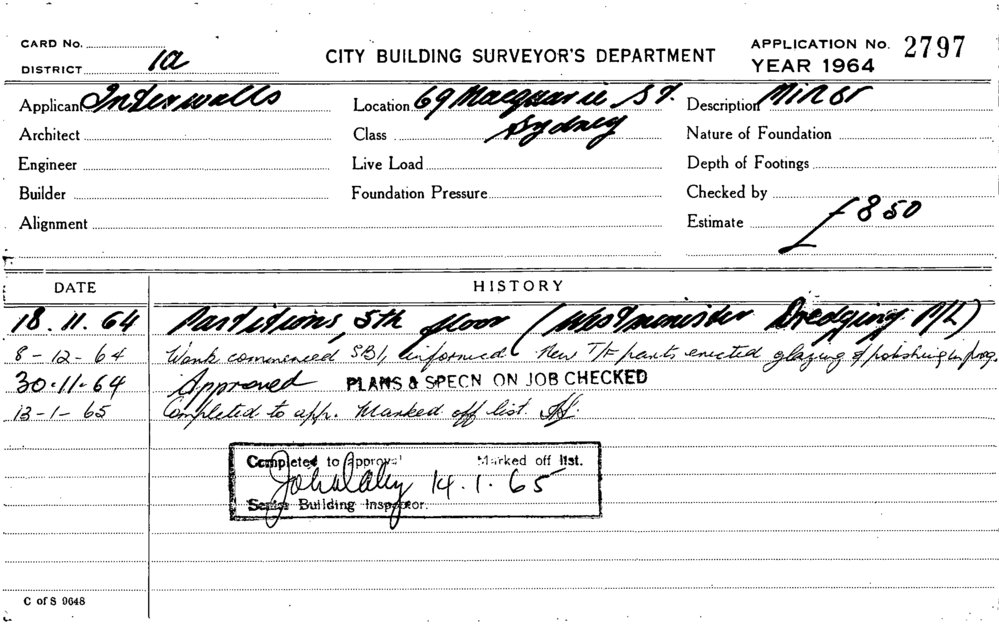 CARD No.
DISTRICT 1a
CITY BUILDING SURVEYOR'S DEPARTMENT
APPLICATION No. 2797
YEAR 1964
Applicant Interwalls
Location 69 Macquarie St.
Sydney
Description Minor
Architect
Class
Nature of Foundation
Engineer
Live Load
Depth of Footings
Builder
Foundation Pressure
Checked by
Alignment
Estimate £850
DATE HISTORY
18.11.64 Partitions, 5th floor (Westminister Dredging P/L)
8-12-64 Work commenced SBI, informed New T/F parts erected glazing & polishing in prog.
30-11-64 Approved PLANS & SPECN ON JOB CHECKED
13-1-65 Completed to app. Marked off list.
Completed to Approval Marked off list.
14.1.65
Senior Building Inspector.
C of S 9648